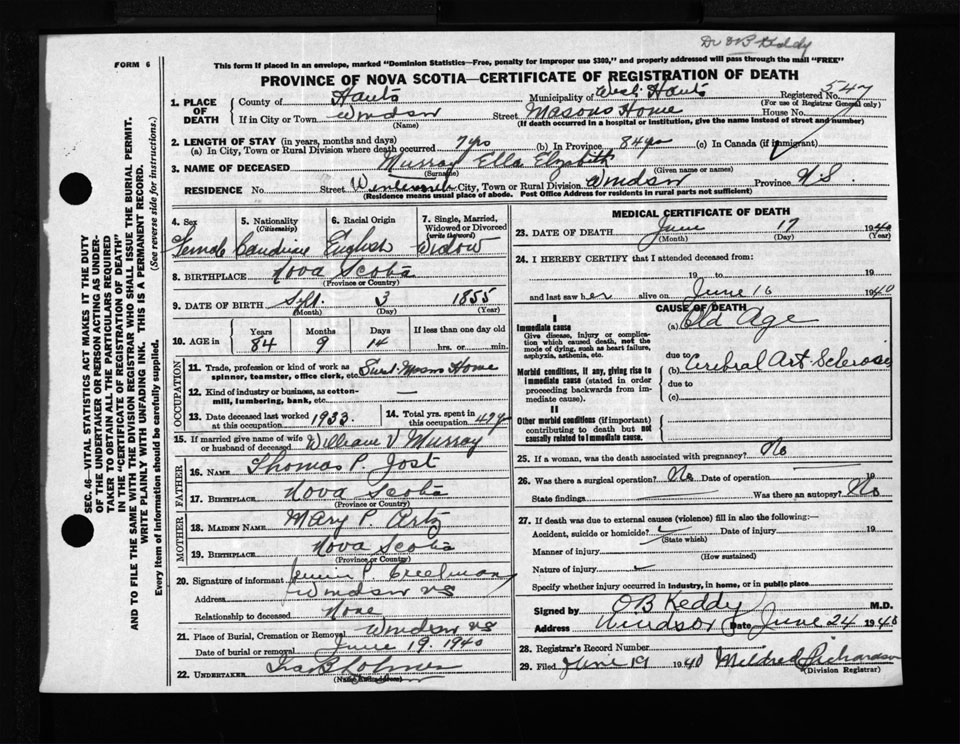 Dr OB Keddy
FORM 6
This form if placed in an envelope, marked "Dominion Statistics—Free, penalty for improper use $300," and properly addressed will pass through the mail "FREE"
PROVINCE OF NOVA SCOTIA—CERTIFICATE OF REGISTRATION OF DEATH
1. PLACE OF DEATH
County of Hants Municipality of West Hants Registered No. 547
(For use of Registrar General only)
If in City or Town Windsor Street Masons Home House No.
(Name) (If death occurred in a hospital or institution, give the name instead of street and number)
2. LENGTH OF STAY (in years, months and days)
(a) In City, Town or Rural Division where death occurred 7 yrs (b) In Province 84 yrs (c) In Canada (if immigrant)
3. NAME OF DECEASED Murray Ella Elizabeth
(Surname) (Given name or names)
RESIDENCE No. Street City, Town or Rural Division Windsor Province N.S.
(Residence means usual place of abode. Post Office Address for residents in rural parts not sufficient)
4. Sex Female
5. Nationality (Citizenship) Canadian
6. Racial Origin English
7. Single, Married, Widowed or Divorced (write the word) Widow
8. BIRTHPLACE Nova Scotia
(Province or Country)
9. DATE OF BIRTH Sept. 3 1855
(Month) (Day) (Year)
10. AGE in Years 84 Months 9 Days 14 If less than one day old
hrs. or min.
OCCUPATION
11. Trade, profession or kind of work as
spinner, teamster, office clerk, etc. Home
12. Kind of industry or business, as cotton-
mill, lumbering, bank, etc. —
13. Date deceased last worked
at this occupation 1933
14. Total yrs. spent in
this occupation
15. If married give name of wife
or husband of deceased William V Murray
FATHER
16. NAME Thomas P. Jost
17. BIRTHPLACE Nova Scotia
(Province or Country)
MOTHER
18. MAIDEN NAME Mary P. Artz
19. BIRTHPLACE Nova Scotia
(Province or Country)
20. Signature of informant Creelman
Address Windsor NS
Relationship to deceased None
21. Place of Burial, Cremation or Removal Windsor NS
Date of burial or removal June 19. 1940
22. UNDERTAKER
(Name and address)
MEDICAL CERTIFICATE OF DEATH
23. DATE OF DEATH June 17 1940
(Month) (Day) (Year)
24. I HEREBY CERTIFY that I attended deceased from:
19 to 19
and last saw her alive on June 16 1940
CAUSE OF DEATH
I
Immediate cause
Give disease, injury or complica-
tion which caused death, not the
mode of dying, such as heart failure,
asphyxia, asthenia, etc.
(a) Old Age
due to
Morbid conditions, if any, giving rise to
immediate cause (stated in order
proceeding backwards from im-
mediate cause).
(b) Cerebral Art Sclerosis
due to
(c)
II
Other morbid conditions (if important)
contributing to death but not
causally related to immediate cause.
25. If a woman, was the death associated with pregnancy? No
26. Was there a surgical operation? No Date of operation 19
State findings Was there an autopsy? No
27. If death was due to external causes (violence) fill in also the following:—
Accident, suicide or homicide? Date of injury 19
(State which)
Manner of injury
(How sustained)
Nature of injury
Specify whether injury occurred in industry, in home, or in public place
Signed by OB Keddy M.D.
Address Windsor Date June 24 1940
28. Registrar's Record Number
29. Filed June 19 1940 Mildred Richardson
(Division Registrar)
SEC. 46—VITAL STATISTICS ACT MAKES IT THE DUTY
OF THE UNDERTAKER OR PERSON ACTING AS UNDER-
TAKER TO OBTAIN ALL THE PARTICULARS REQUIRED
IN THE "CERTIFICATE OF REGISTRATION OF DEATH"
AND TO FILE THE SAME WITH THE DIVISION REGISTRAR WHO SHALL ISSUE THE BURIAL PERMIT.
WRITE PLAINLY WITH UNFADING INK. THIS IS A PERMANENT RECORD.
Every item of information should be carefully supplied. (See reverse side for instructions.)